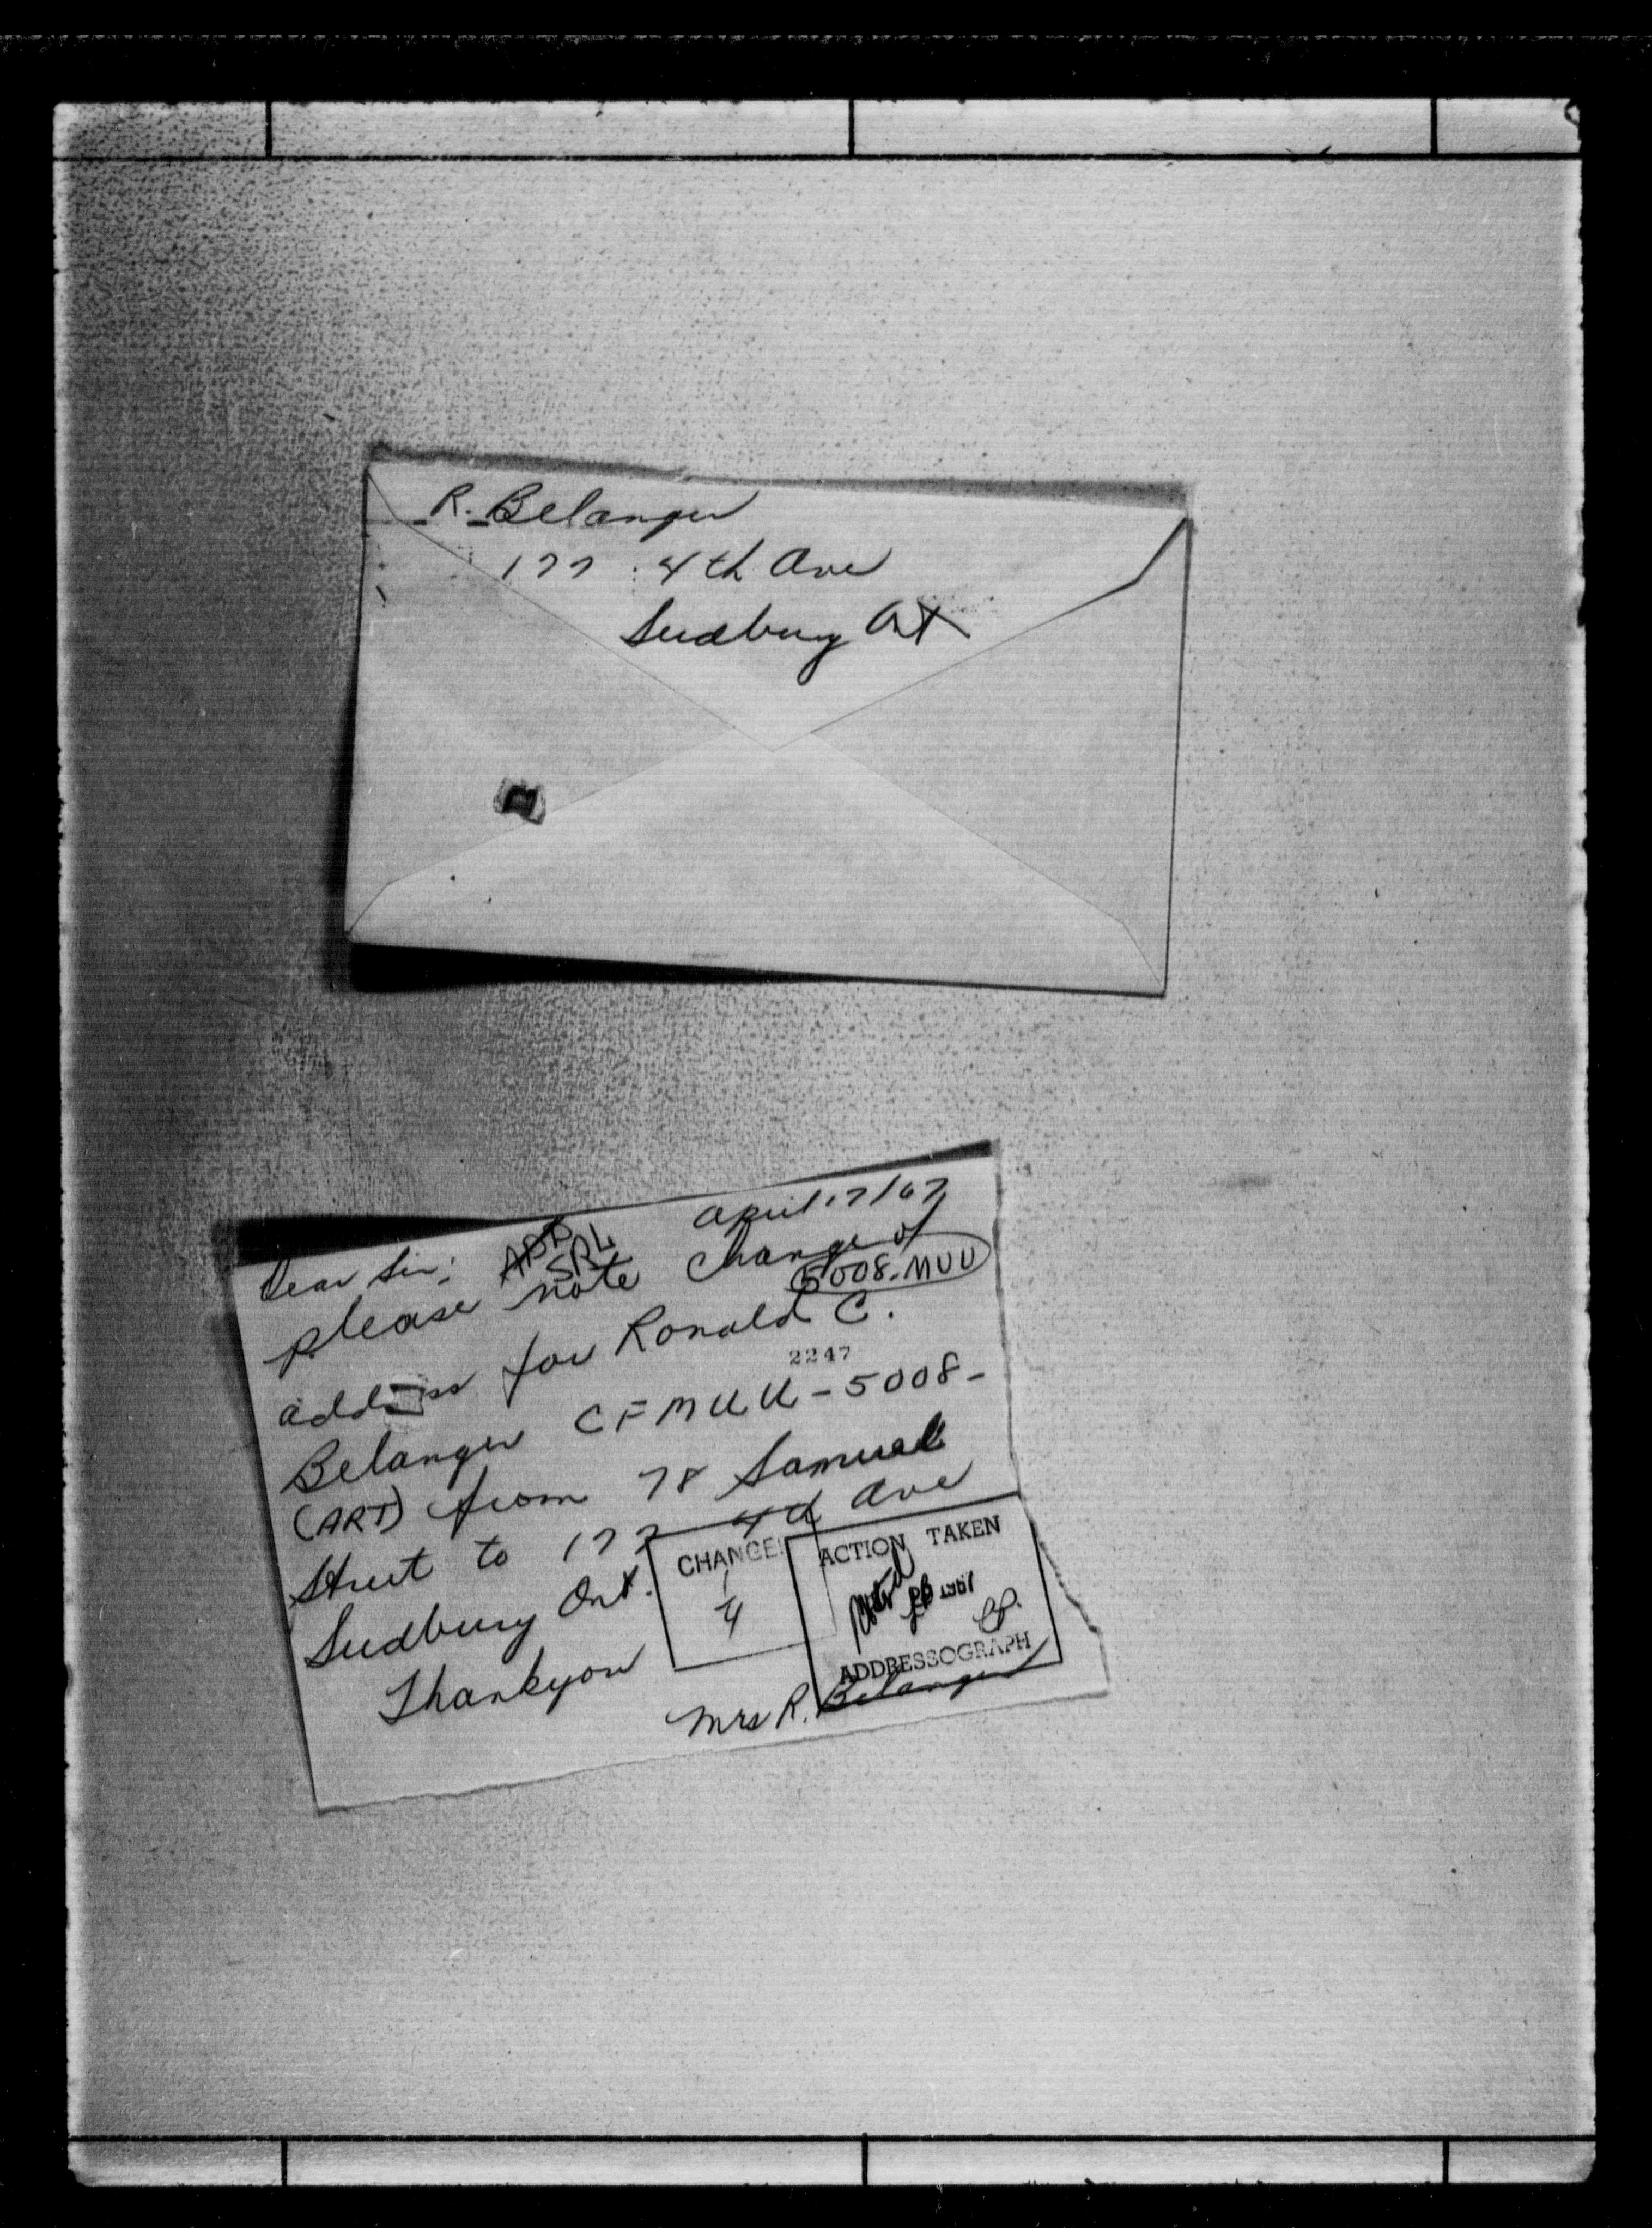 R. Belanger
177 4th Ave
Sudbury Ont
April 17/67
Dear Sir:
SRL
please note change of
5008-MUU
address for Ronald C.
2247
Belanger CFMUU-5008-
(ART) from 78 Samuel
Street to 177 4th Ave
Sudbury Ont.
Thankyou
CHANGE
4
ACTION TAKEN
1967
ADDRESSOGRAPH
Mrs R. Belanger